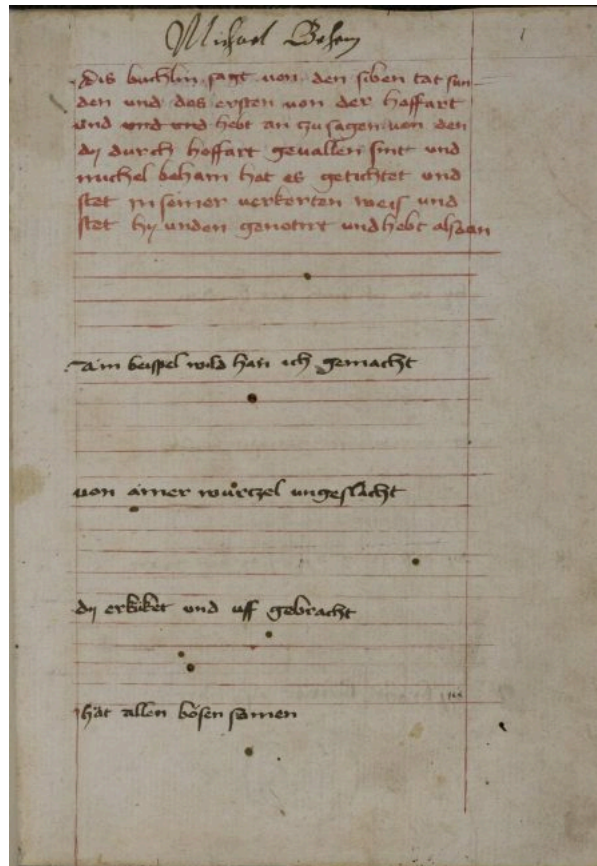 Michael Beham
1
Dis buchlin sagt von den siben tat sun
den und des ersten von der hoffart
und und und hebt an zu sagen von den
dy durch hoffart gevallen sint und
michel beham hat es getichtet und
stet in seiner verkerten weis und
stet hy unden genotirt und hebt also an
Ain beispel wild han ich gemacht
von ainer wuͦrtzel ungeslacht
dy erkiket und uff gebracht
hat allen bösen samen